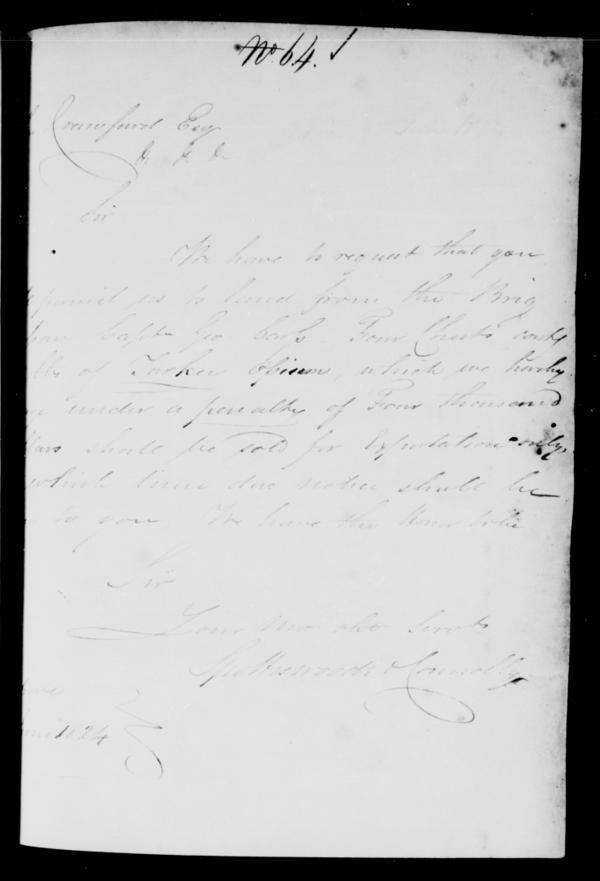 No. 64.
Crawfurd Esq
Sir
We have to request that you
permit us to land from the Brig
Capt Geo. Four Chests
of Turkey Opium, which we hereby
under a penalty of Four thousand
shall be sold for Exportation only,
which time due notice shall be
to you We have the Honor to be
Sir
Your Mo obt Servts
Spottiswoode & Connolly
1824